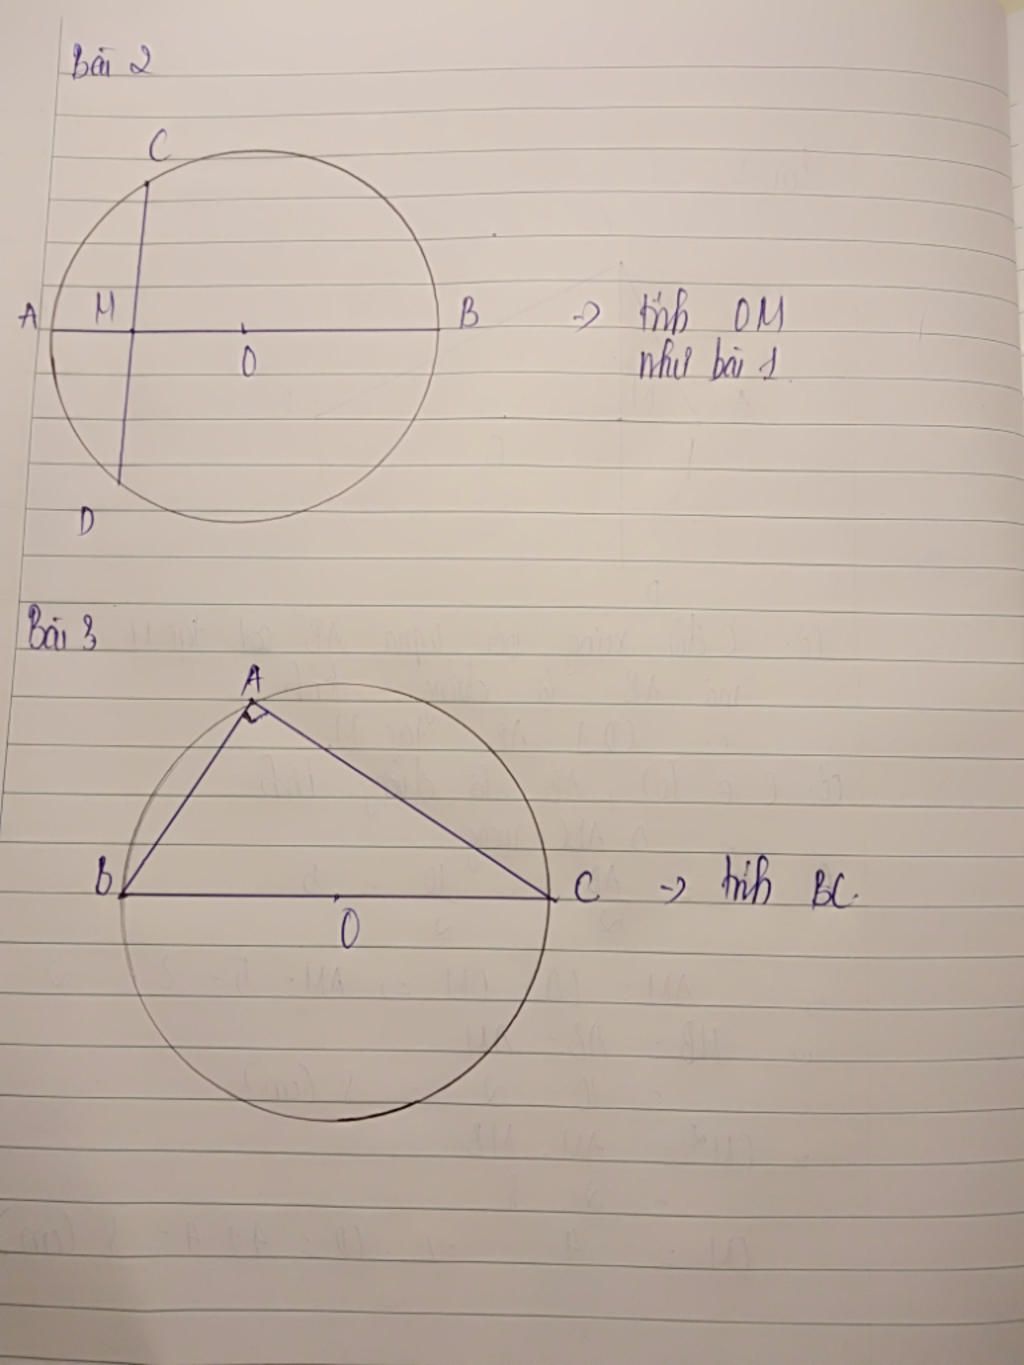 Bài 2
C
A M B → tính OM
O như bài 1
D
Bài 3
A
B C → tính BC.
O